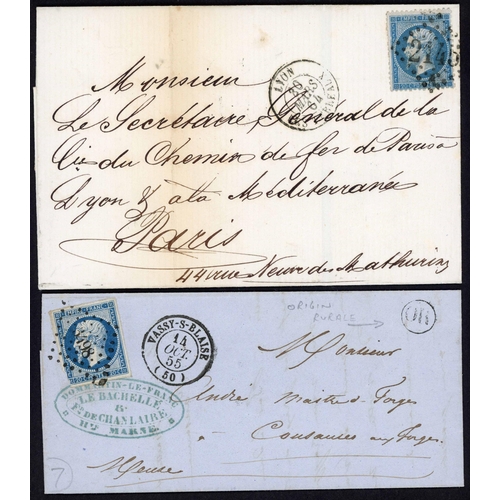 EMPIRE FRANC
2145
LYON
26
MARS
64
Monsieur
Le Secrétaire Général de la
Cie du Chemin de fer de Paris à
Lyon & à la Méditerranée
Paris
44 rue Neuve des Mathurins
EMPIRE FRANC
VASSY-S-BLAISE
14
OCT.
55
(50)
ORIGIN
RURALE
OR
DOMMARTIN-LE-FRANC
LE BACHELLÉ
&
P. DE CHANLAIRE
Hte MARNE
Monsieur
André Maître de Forges
Cousances aux Forges
Meuse